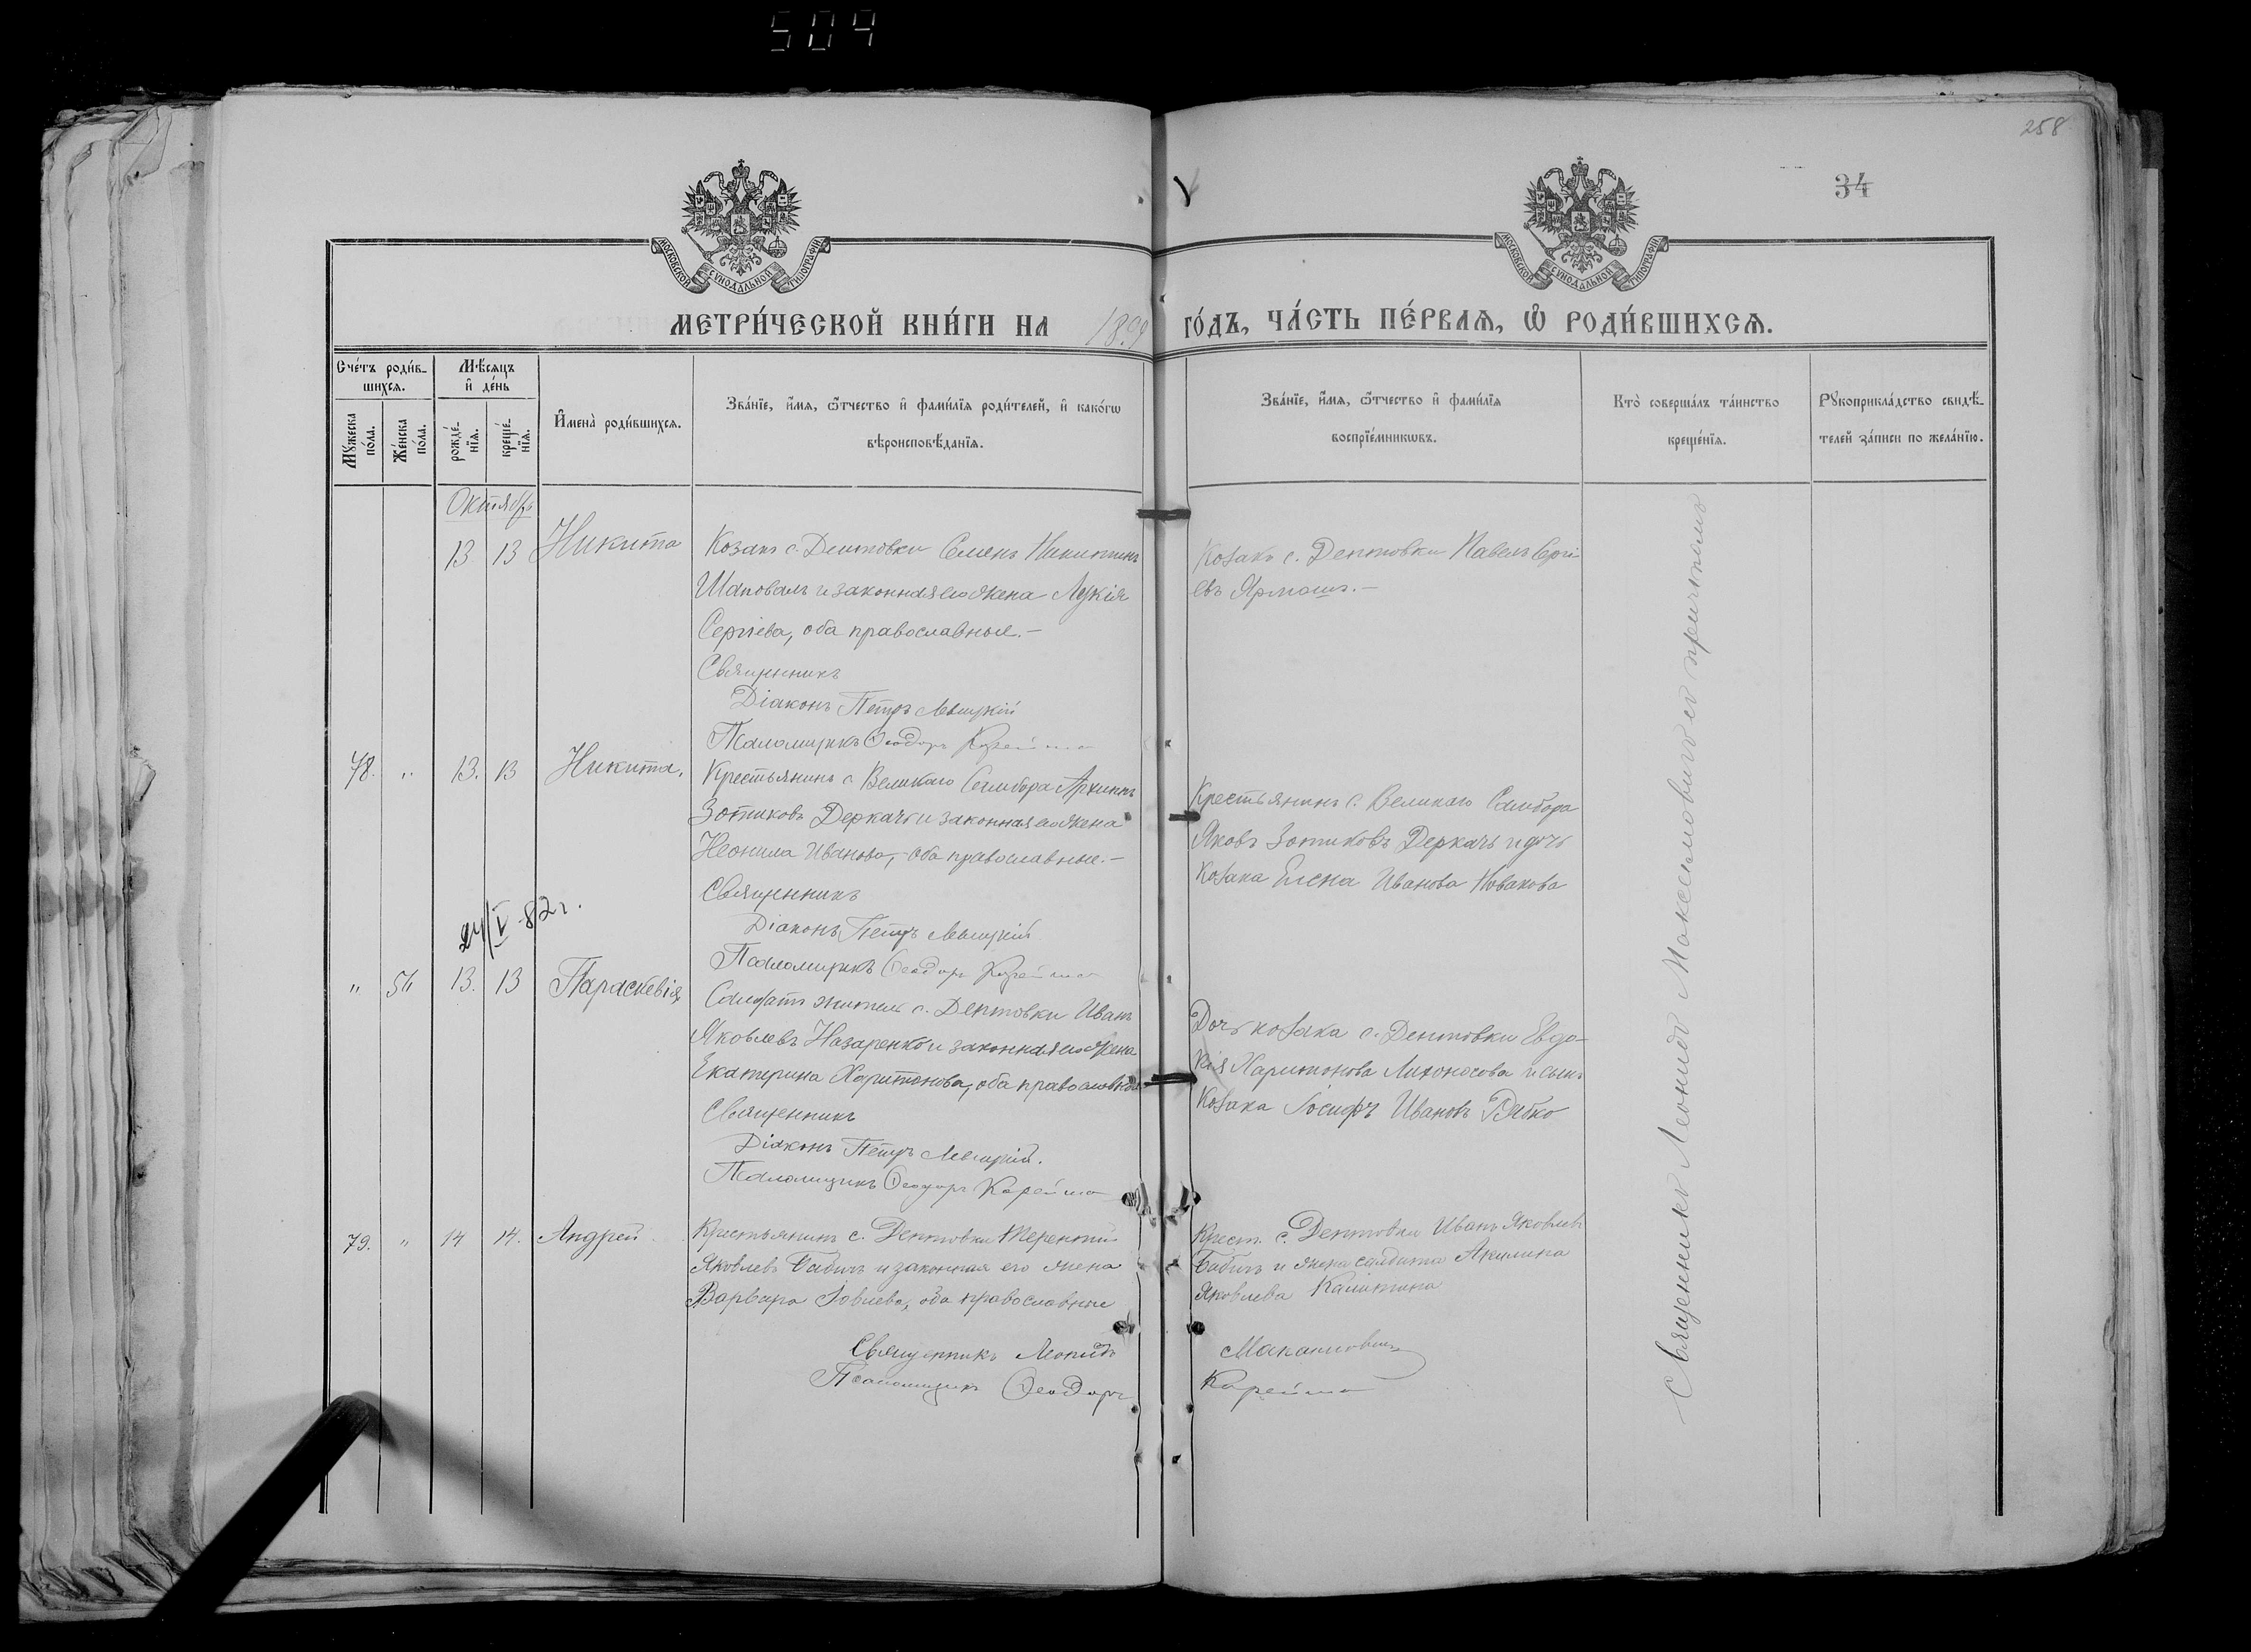 504
258
34
МОСКОВСКОЙ СУНОДАЛЬНОЙ ТИПОГРАФІИ
МОСКОВСКОЙ СУНОДАЛЬНОЙ ТИПОГРАФІИ
МЕТРИ́ЧЕСКОЙ КНИ́ГИ НА 1899 ГО́ДЪ, ЧА́СТЬ ПЕ́РВАѦ, Ѽ РОДИ́ВШИХСѦ.
Сче́тъ роди́в-
шихся.
Мѣ́сяцъ
и҆ де́нь
Мꙋ́жеска
по́ла.
Же́нска
по́ла.
рожде́-
нїя.
креще́-
нїя.
И҆мена̀ роди́вшихся.
Зва́нїе, и҆́мя, ѻ҆́тчество и҆ фами́лїя роди́телей, и҆ како́гѡ
вѣроисповѣ́данїя.
Зва́нїе, и҆́мя, ѻ҆́тчество и҆ фами́лїя
воспрїе́мникѡвъ.
Кто̀ соверша́лъ та́инство
креще́нїя.
Рꙋкоприкла́дство свидѣ́-
телей за́писи по жела́нїю.
Октябрь
13 13 Никита
Козакъ с. Дептовки Семенъ Никитинъ
Шаповалъ и законная его жена Лукія
Сергіева, оба православные.-
Священникъ
Діаконъ Петръ Левицкій
Псаломщикъ Ѳеодоръ Карейша
Козакъ с. Дептовки Павелъ Сергі-
евъ Ярмошъ.-
78. " 13. 13 Никита.
Крестьянинъ с. Великаго Самбора Архипъ
Зотиковъ Деркачъ и законная его жена
Неонила Иванова, оба православные.-
Священникъ
Діаконъ Петръ Левицкій
Псаломщикъ Ѳеодоръ Карейша
Крестьянинъ с. Великаго Самбора
Яковъ Зотиковъ Деркачъ и дочь
Козака Елена Иванова Новакова
24/V-82г.
" 54 13. 13 Параскевія
Солдатъ житель с. Дептовки Иванъ
Яковлевъ Назаренко и законная его жена
Екатерина Харитонова, оба православные
Священникъ
Діаконъ Петръ Левицкій.
Псаломщикъ Ѳеодоръ Карейша
Дочь козака с. Дептовки Евдо-
кія Харитонова Лихоносова и сынъ
Козака Іосифъ Ивановъ Рябко
79. " 14 14. Андрей
Крестьянинъ с. Дептовки Терентій
Яковлевъ Бабичъ и законная его жена
Варвара Іовлева, оба православные
Священникъ Леонидъ Максимовичъ
Псаломщикъ Ѳеодоръ Карейша
Крест. с. Дептовки Иванъ Яковлевъ
Бабичъ и жена солдата Акилина
Яковлева Калитина
Священникъ Леонидъ Максимовичъ съ причтомъ